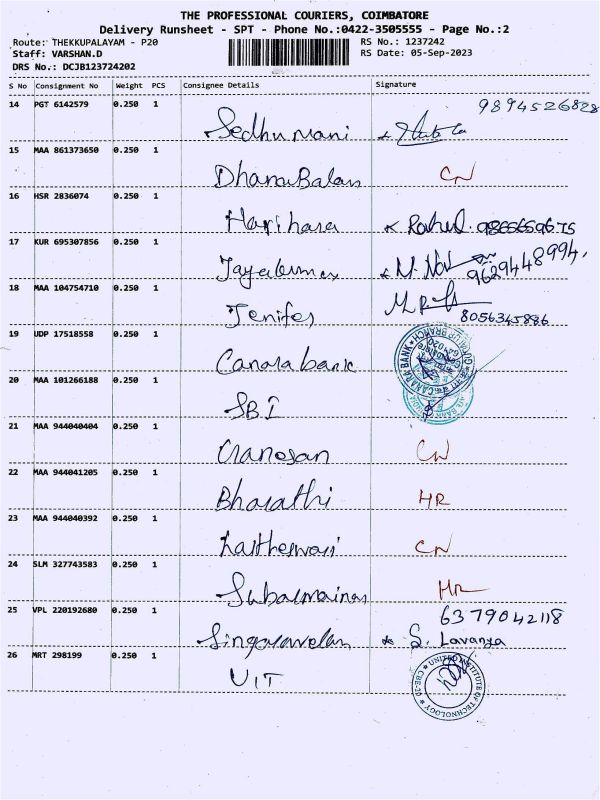 THE PROFESSIONAL COURIERS, COIMBATORE
Delivery Runsheet - SPT - Phone No.:0422-3505555 - Page No.:2
Route: THEKKUPALAYAM - P20 RS No.: 1237242
Staff: VARSHAN.D RS Date: 05-Sep-2023
DRS No.: DCJB123724202
S No Consignment No Weight PCS Consignee Details Signature
14 PGT 6142579 0.250 1 9894526828
Sedhumani
15 MAA 861373650 0.250 1
DhanaBalan CN
16 HSR 2836074 0.250 1
Harihara Rahul. 9865659675
17 KUR 695307856 0.250 1
Jayakumar 9629448994.
18 MAA 104754710 0.250 1
Jenifer 8056345886
19 UDP 17518558 0.250 1
Canara bank
CANARA BANK
20 MAA 101266188 0.250 1
SBI
21 MAA 944040404 0.250 1
CN
22 MAA 944041205 0.250 1
Bharathi HR
23 MAA 944040392 0.250 1
CN
24 SLM 327743583 0.250 1
HR
25 VPL 220192680 0.250 1 6379042118
Singaravelan S. Lavanya
26 MRT 298199 0.250 1
UIT
UNITED INSTITUTE OF TECHNOLOGY